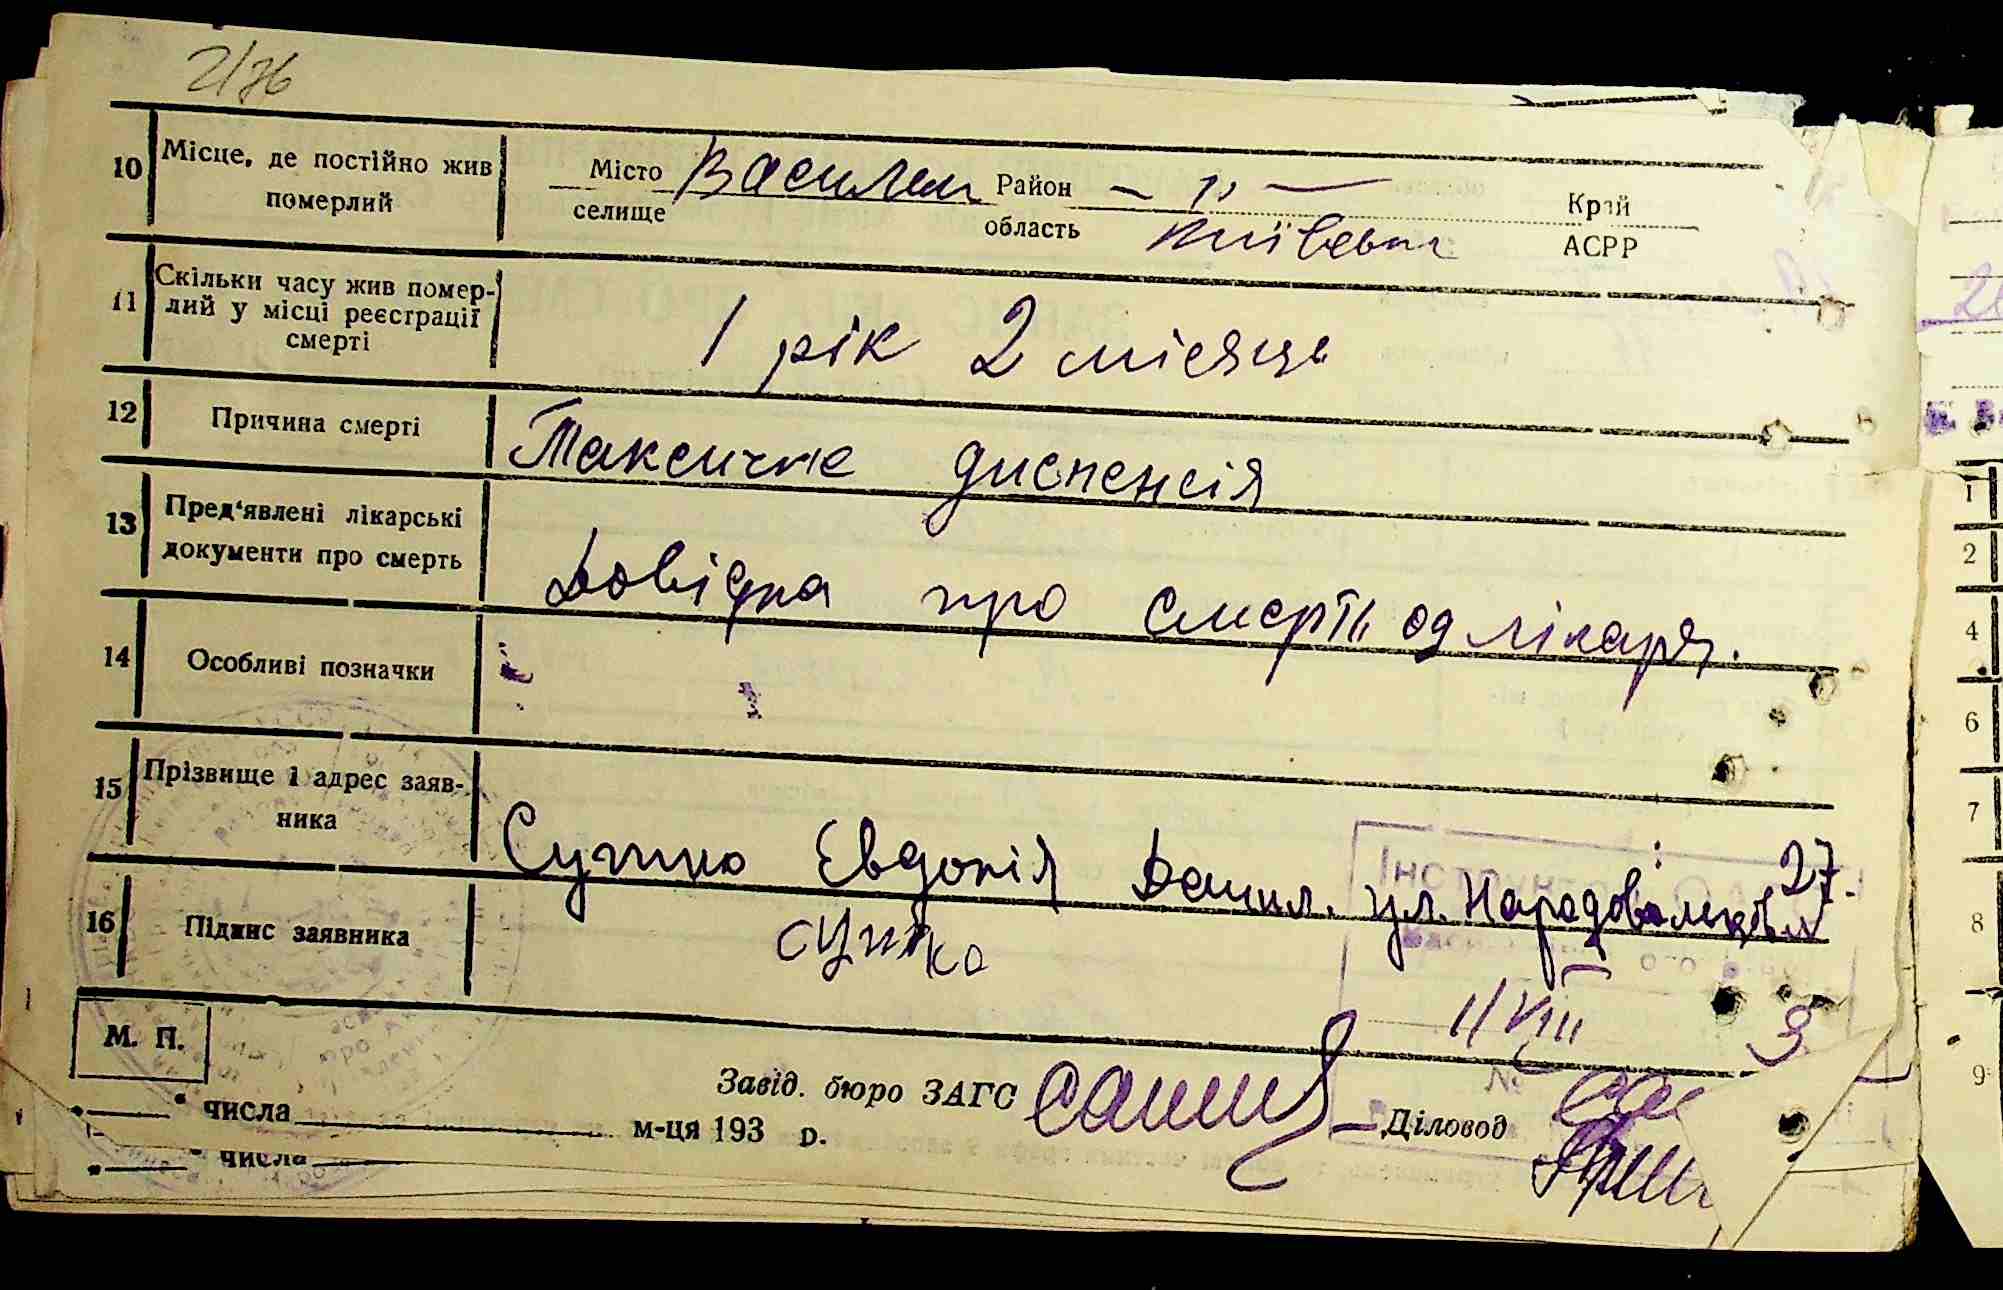 2/76
10 Місце, де постійно жив Місто Василем Район — " — Край
померлий селище область Київськ АСРР
11 Скільки часу жив помер-
лий у місці реєстрації 1 рік 2 місяць
смерті
12 Причина смерті Таксичне диспенсія
13 Пред'явлені лікарські
документи про смерть Довідка про смерть од лікаря.
14 Особливі позначки
15 Прізвище і адрес заяв-
ника Сушко Евдокія Данил. ул. 27.
16 Підпис заявника сушко
11 VIII 3
М. П.
Завід. бюро ЗАГС Діловод
числа м-ця 193 р.
числа
1
2
4
6
7
8
9